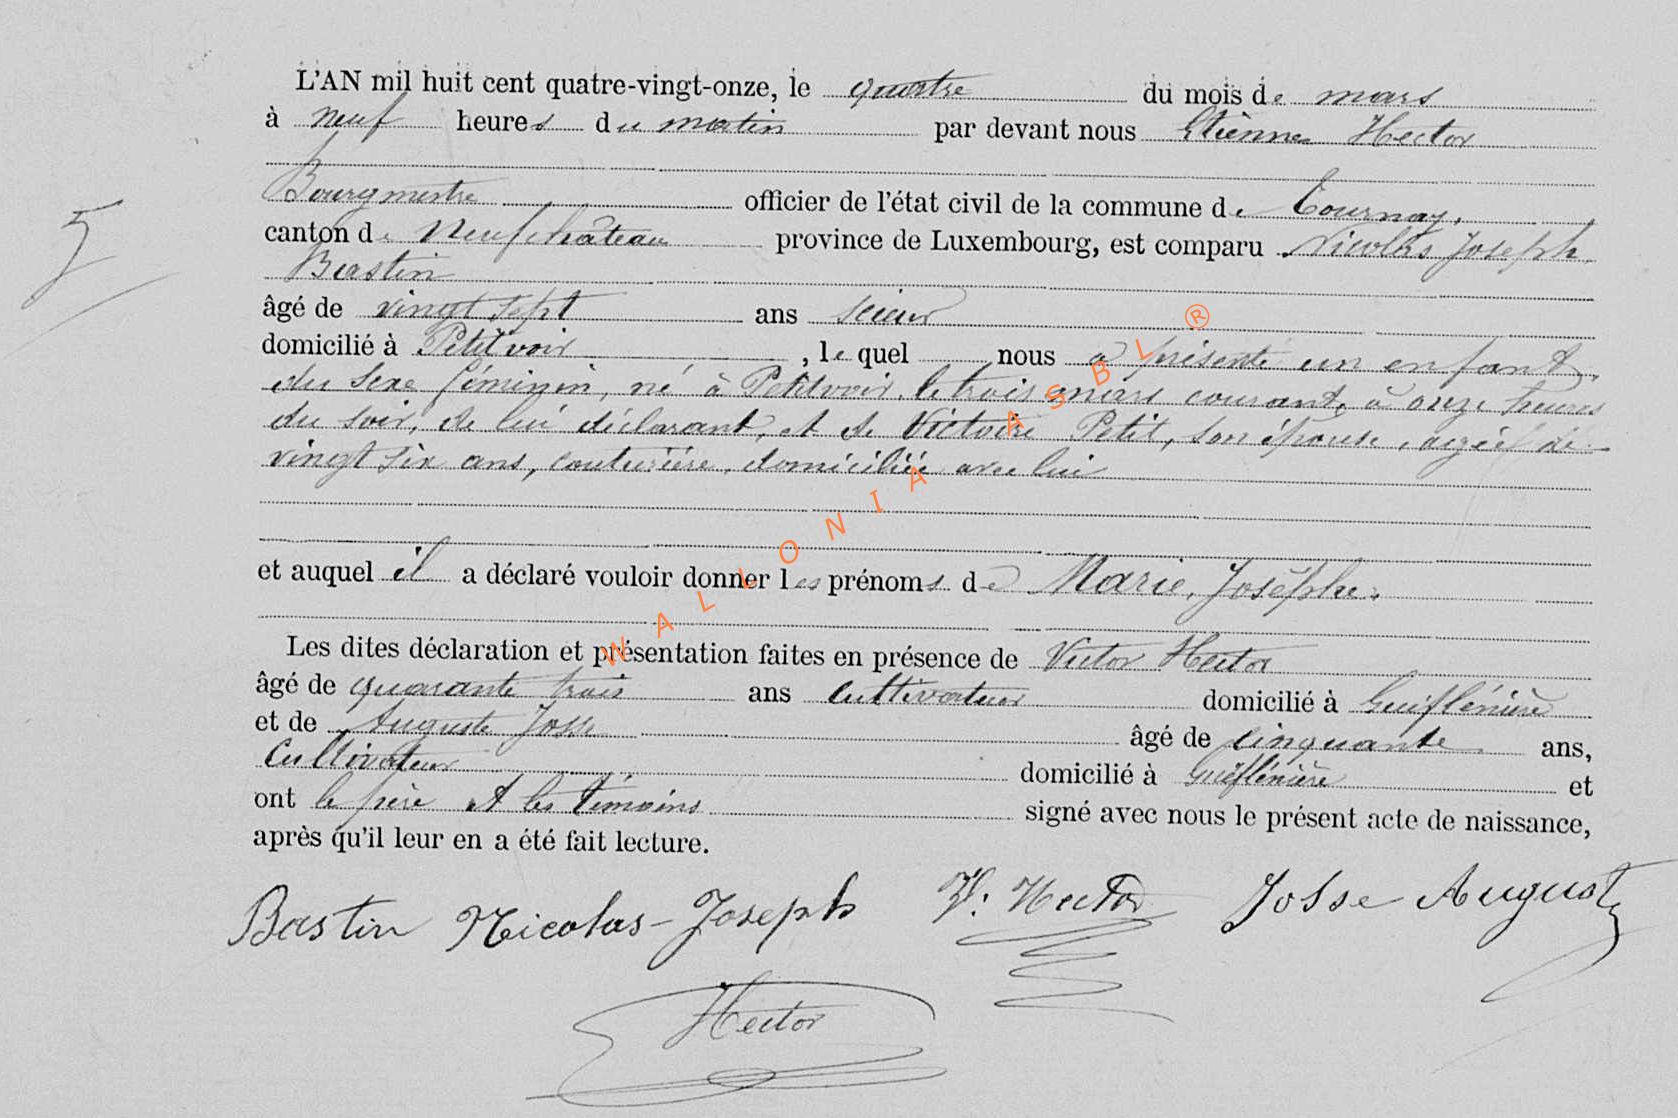 L'AN mil huit cent quatre-vingt-onze, le quatre du mois de mars
à neuf heures du matin par devant nous Etienne Hector
Bourgmestre officier de l'état civil de la commune de Tournay,
canton de Neufchâteau province de Luxembourg, est comparu Nicolas Joseph
Bastin
âgé de vingt sept ans scieur
domicilié à Petitvoir, lequel nous a présenté un enfant
du sexe féminin, né à Petitvoir, le trois mars courant, à onze heures
du soir, de lui déclarant, et de Victoire Petit, son épouse, agée de
vingt six ans, couturière, domiciliée avec lui
et auquel il a déclaré vouloir donner les prénoms de Marie, Josèphe.
Les dites déclaration et présentation faites en présence de Victor Hector
âgé de quarante trois ans cultivateur domicilié à Grifflénière
et de Auguste Josse âgé de cinquante ans,
Cultivateur domicilié à et
ont le père et les témoins signé avec nous le présent acte de naissance,
après qu'il leur en a été fait lecture.
Bastin Nicolas-Joseph V. Hector Josse Auguste
Hector
5
WALLONIA ASBL ®